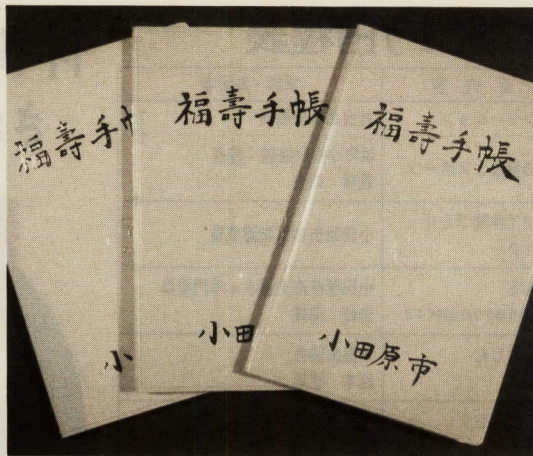 福壽手帳
小
福壽手帳
小田
福壽手帳
小田原市